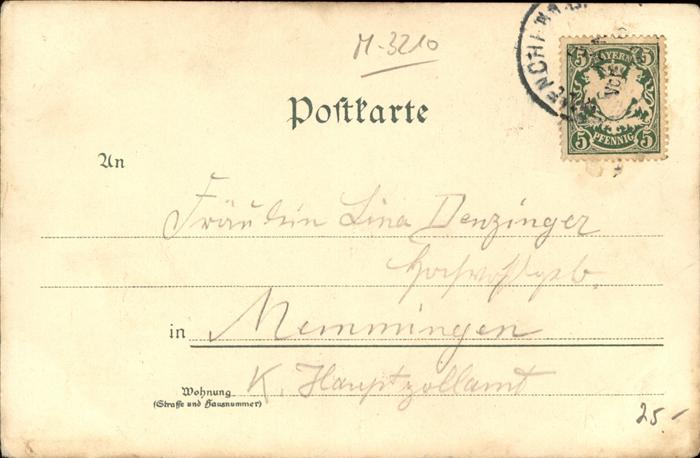 M-3210
MÜNCHEN
BAYERN
5 5
5 PFENNIG 5
Postkarte
An
Fräulein Lina Denzinger
Hochwohlgeb.
in Memmingen
K. Hauptzollamt
Wohnung
(Straße und Hausnummer)
25.-